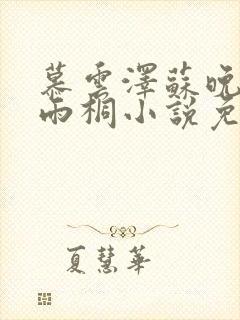 慕雲澤蘇晚
雨桐小說免
夏慧華